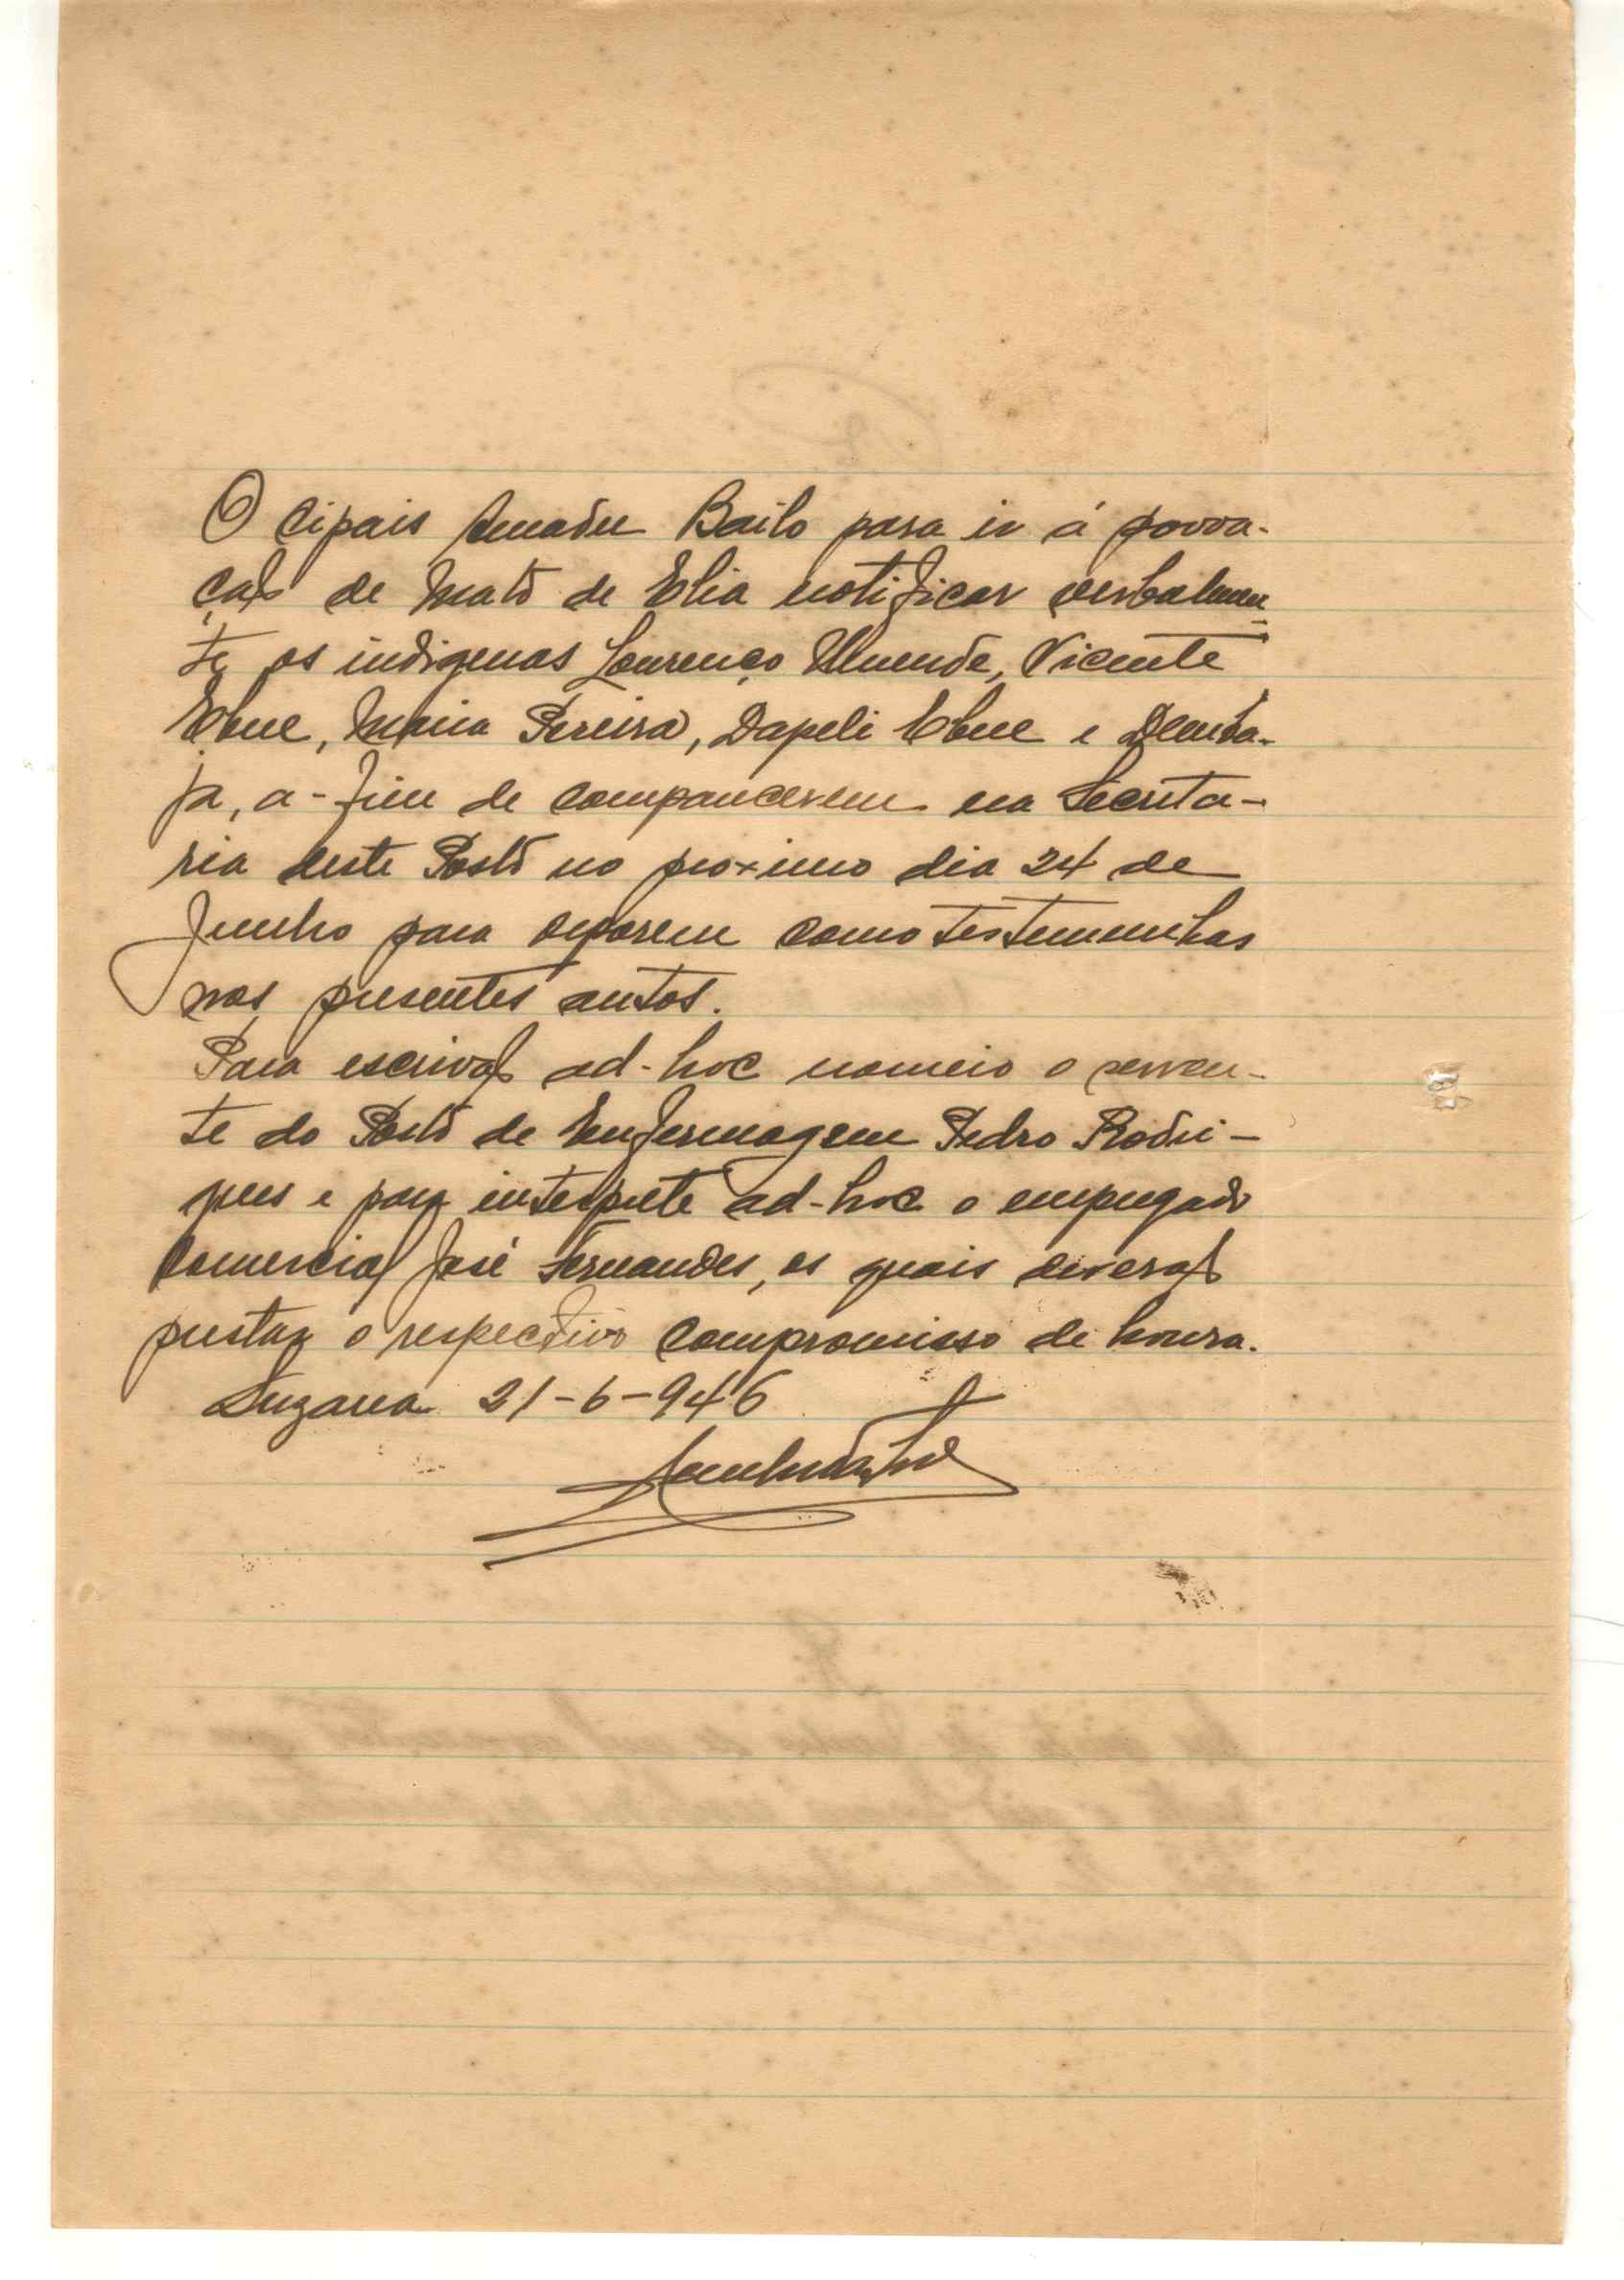 O cipais Amadu Bailo para ir á povoa-
ção de Mato de Elia notificar verbalmen-
te os indigenas Lourenço Umende, Vicente
Ebue, Maria Pereira, Dapeli Ebue e
ja, a-fim de comparecerem na Secreta-
ria deste Posto no proximo dia 24 de
Junho para deporem como testemunhas
nos presentes autos.
Para escrivão ad-hoc nomeio o serven-
te do Posto de Enfermagem Pedro Rodri-
gues e para interprete ad-hoc o empregado
comercial José Fernandes, os quais deverão
prestar o respectivo compromisso de honra.
Suzana 21-6-946